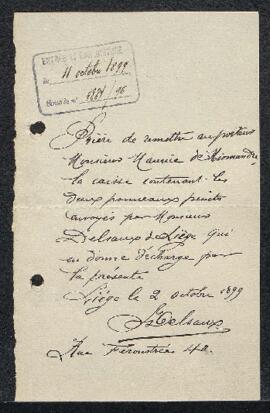 4 octobre 1899
Prière de remettre au porteur
Monsieur Maurice de Miomandre
la caisse contenant les
deux panneaux peints
envoyés par Monsieur
Delsaux de Liège qui
en donne décharge par
la présente
Liège le 2 octobre 1899
Delsaux
Rue Féronstrée 42